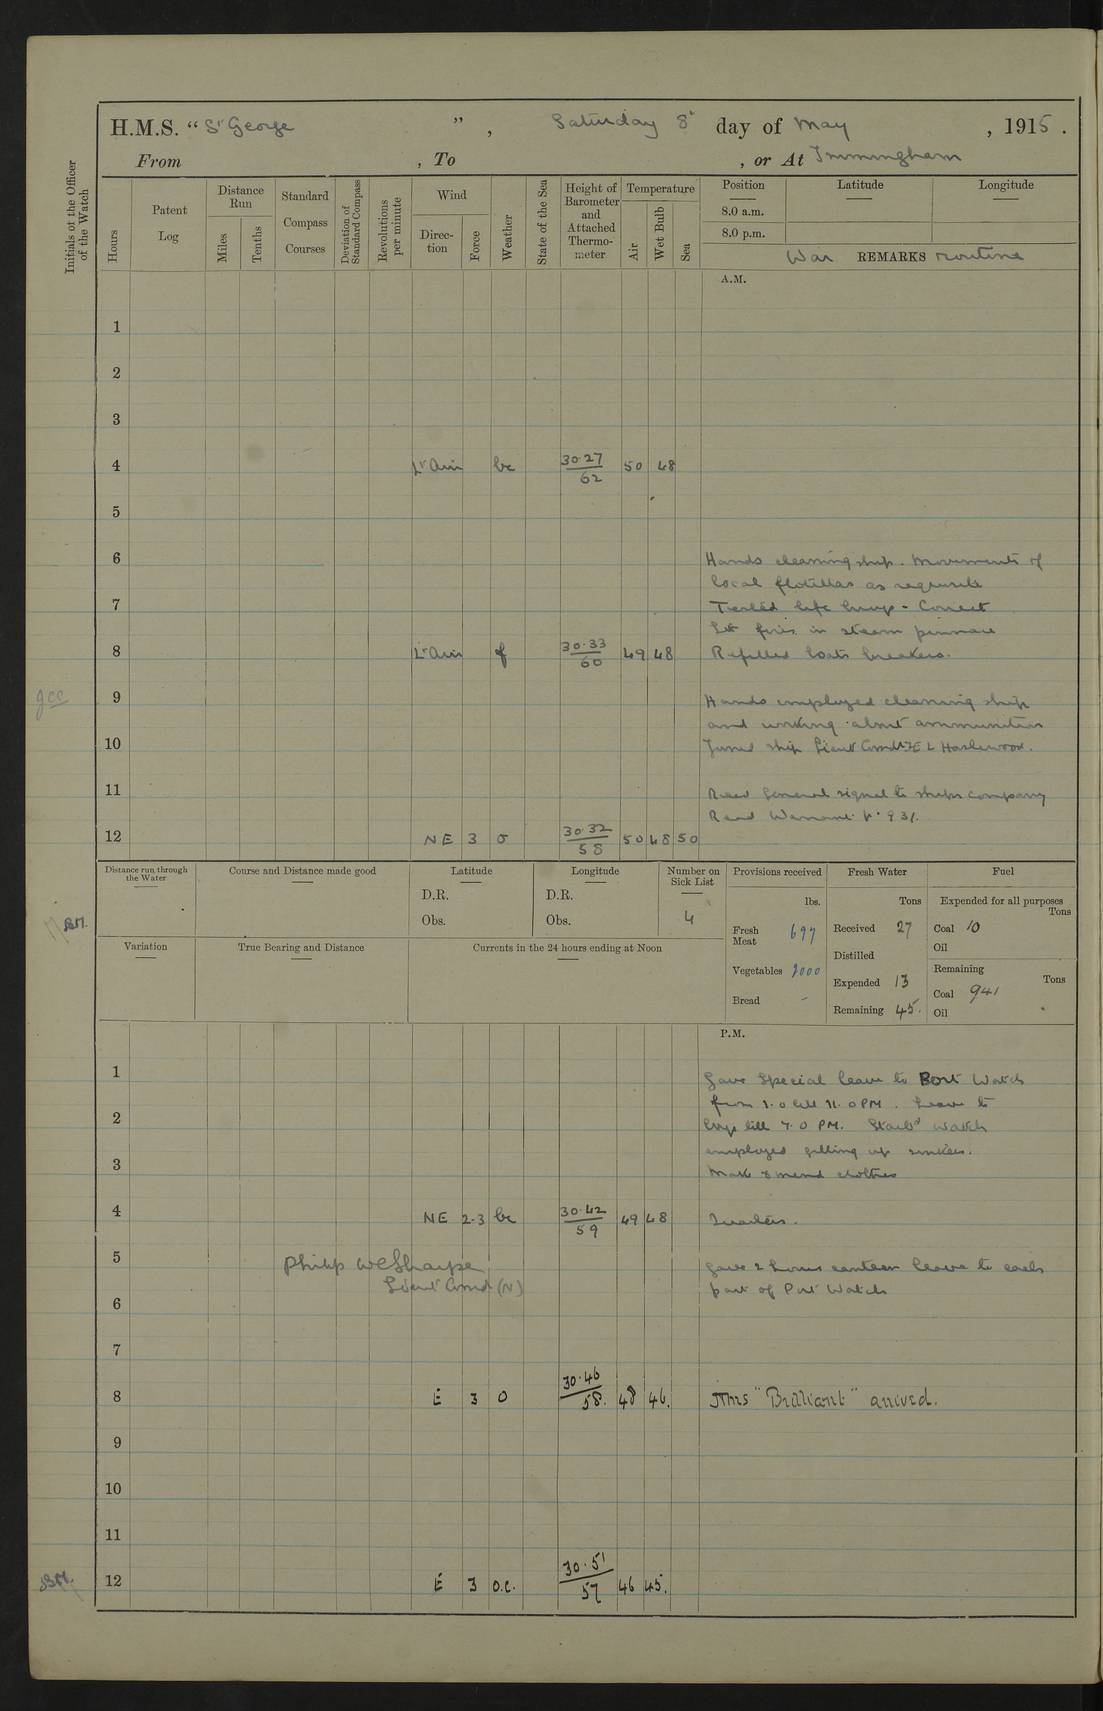 H.M.S. "St George", Saturday 8th day of May, 1915.
From , To , or At Immingham
Initials of the Officer of the Watch
Hours
Patent Log
Distance Run
Miles
Tenths
Standard Compass Courses
Deviation of Standard Compass
Revolutions per minute
Wind
Direction
Force
Weather
State of the Sea
Height of Barometer and Attached Thermometer
Temperature
Air
Wet Bulb
Sea
Position Latitude Longitude
8.0 a.m.
8.0 p.m.
War REMARKS routine
A.M.
1
2
3
4 Lt Air bc 30.27/62 50 48
5
6 Hands cleaning ship. Movements of
local flotillas as requisite
7 Tested life buoys - Correct
Lit fires in steam pinnace
8 Lt Air f 30.33/60 49 48 Refilled boats breakers.
9 Hands employed cleaning ship
and working about ammunition
10 Joined ship Lieut Comdr F E L Haslewood.
11 Read General signal to ships company
Read Warrant No 931.
12 NE 3 o 30.32/58 50 48 50
Distance run through the Water
Course and Distance made good
Latitude
D.R.
Obs.
Longitude
D.R.
Obs.
Number on Sick List
4
Provisions received
lbs.
Fresh Meat 697
Vegetables 2000
Bread -
Fresh Water
Tons
Received 27
Distilled
Expended 13
Remaining 45.
Fuel
Expended for all purposes
Tons
Coal 10
Oil
Remaining
Tons
Coal 941
Oil
Variation
True Bearing and Distance
Currents in the 24 hours ending at Noon
P.M.
1 Gave Special leave to Port Watch
from 1.0 till 11.0 PM. Leave to
2 boys till 7.0 PM. Starbd watch
employed getting up
3 Make & mend clothes
4 NE 2.3 bc 30.42/59 49 48 Quarters.
5 Philip W E Sharpe Gave 2 hours canteen leave to each
Lieut Comdr (N) part of Port Watch
6
7
8 E 3 O 30.46/58. 48 46. HMS "Brilliant" arrived.
9
10
11
12 E 3 o.c. 30.51/57 46 45.